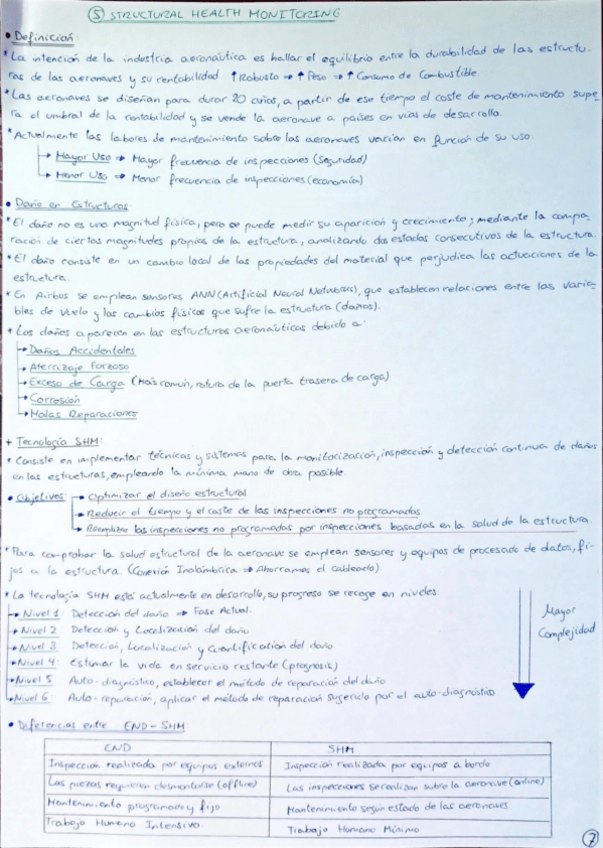 ⑤ STRUCTURAL HEALTH MONITORING
• Definición:
* La intención de la industria aeronáutica es hallar el equilibrio entre la durabilidad de las estructu-
ras de las aeronaves y su rentabilidad ↑Robusto ⇒ ↑Peso ⇒ ↑Consumo de Combustible.
* Las aeronaves se diseñan para durar 20 años, a partir de ese tiempo el coste de mantenimiento supe-
ra el umbral de la rentabilidad y se vende la aeronave a países en vías de desarrollo.
* Actualmente las labores de mantenimiento sobre las aeronaves varían en función de su uso:
→ Mayor Uso ⇒ Mayor frecuencia de inspecciones (seguridad)
→ Menor Uso ⇒ Menor frecuencia de inspecciones (economía)
• Daño en Estructuras
* El daño no es una magnitud física, pero se puede medir su aparición y crecimiento; mediante la compa-
ración de ciertas magnitudes propias de la estructura, analizando dos estados consecutivos de la estructura.
* El daño consiste en un cambio local de las propiedades del material que perjudica las actuaciones de la
estructura.
* En Airbus se emplean sensores ANN (Artificial Neural Networks), que establecen relaciones entre las varia-
bles de vuelo y los cambios físicos que sufre la estructura (daños).
+ Los daños aparecen en las estructuras aeronáuticas debido a:
→ Daños Accidentales
→ Aterrizaje Forzoso
→ Exceso de Carga (Más común, rotura de la puerta trasera de carga)
→ Corrosión
→ Malas Reparaciones
+ Tecnología SHM:
* Consiste en implementar técnicas y sistemas para la monitorización, inspección y detección continua de daños
en las estructuras, empleando la mínima mano de obra posible.
• Objetivos: → Optimizar el diseño estructural
→ Reducir el tiempo y el coste de las inspecciones no programadas
→ Reemplazar las inspecciones no programadas por inspecciones basadas en la salud de la estructura.
* Para comprobar la salud estructural de la aeronave se emplean sensores y equipos de procesado de datos, fi-
jos a la estructura. (Conexión Inalámbrica ⇒ Ahorramos el cableado).
* La tecnología SHM está actualmente en desarrollo, su progreso se recoge en niveles:
→ Nivel 1: Detección del daño ⇒ Fase Actual.
→ Nivel 2 Detección y Localización del daño
→ Nivel 3 Detección, Localización y Cuantificación del daño
→ Nivel 4: Estimar la vida en servicio restante (prognosis)
→ Nivel 5 Auto-diagnóstico, establecer el método de reparación del daño
→ Nivel 6: Auto-reparación, aplicar el método de reparación sugerido por el auto-diagnóstico
Mayor
Complejidad
• Diferencias entre END-SHM:
END SHM
Inspección realizada por equipos externos Inspección realizada por equipos a bordo
Las piezas requieren desmontarse (offline) Las inspecciones se realizan sobre la aeronave (online)
Mantenimiento programado y fijo Mantenimiento según estado de las aeronaves
Trabajo Humano Intensivo Trabajo Humano Mínimo
7